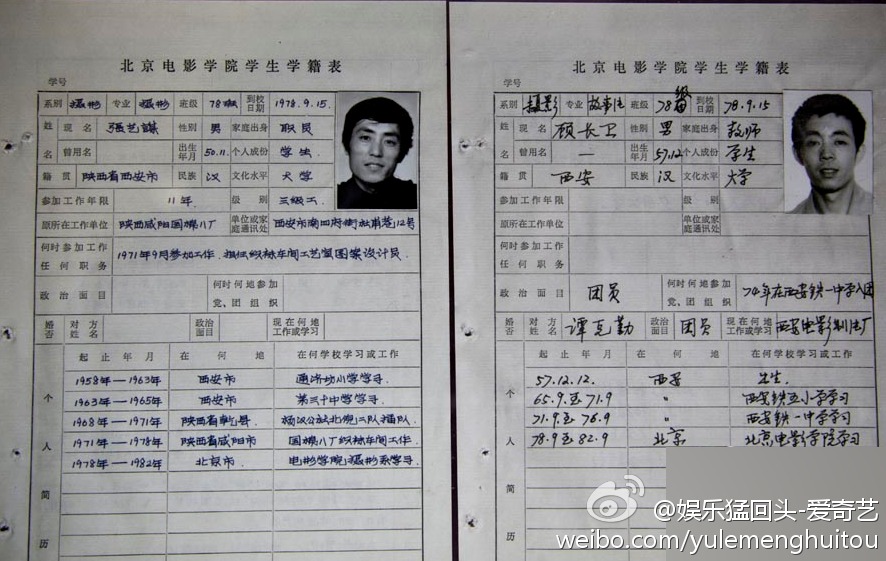 北京电影学院学生学籍表
学号
系别 摄影 专业 摄影 班级 78班 到校日期 1978.9.15.
姓 现名 张艺谋 性别 男 家庭出身 职员
名 曾用名 出生年月 50.11. 个人成份 学生.
籍贯 陕西省西安市 民族 汉 文化水平 大学
参加工作年限 11年. 级别 三级工.
原所在工作单位 陕西咸阳国棉八厂 单位或家庭通讯处 西安市南四府街 12号
何时参加工作任何职务 1971年9月参加工作. 担任织袜车间工艺室图案设计员.
政治面目 何时何地参加党、团组织
婚否 对方姓名 政治面目 现在何地工作或学习
起止年月 在何地 在何学校学习或工作
个人简历
1958年—1963年 西安市 通济坊小学学习
1963年—1965年 西安市 第三十中学学习.
1968年—1971年 陕西省乾县. 杨汉公社北倪二队插队.
1971年—1978年 陕西省咸阳市 国棉八厂织袜车间工作.
1978年—1982年 北京市. 电影学院摄影系学习.
北京电影学院学生学籍表
学号
系别 摄影 专业 故事片 班级 78级 到校日期 78.9.15
姓 现名 顾长卫 性别 男 家庭出身 教师
名 曾用名 — 出生年月 57.12 个人成份 学生
籍贯 西安 民族 汉 文化水平 大学
参加工作年限 级别
原所在工作单位 单位或家庭通讯处
何时参加工作任何职务
政治面目 团员 何时何地参加党、团组织 74年在西安铁一中学入团
婚否 对方姓名 谭克勤 政治面目 团员 现在何地工作或学习 西安电影制片厂
起止年月 在何地 在何学校学习或工作
个人简历
57.12.12. 西安 出生.
65.9.至71.9 〃 西安铁五小学学习
71.9.至76.9 〃 西安铁一中学学习
78.9至82.9 北京 北京电影学院学习
@娱乐猛回头-爱奇艺
weibo.com/yulemenghuitou